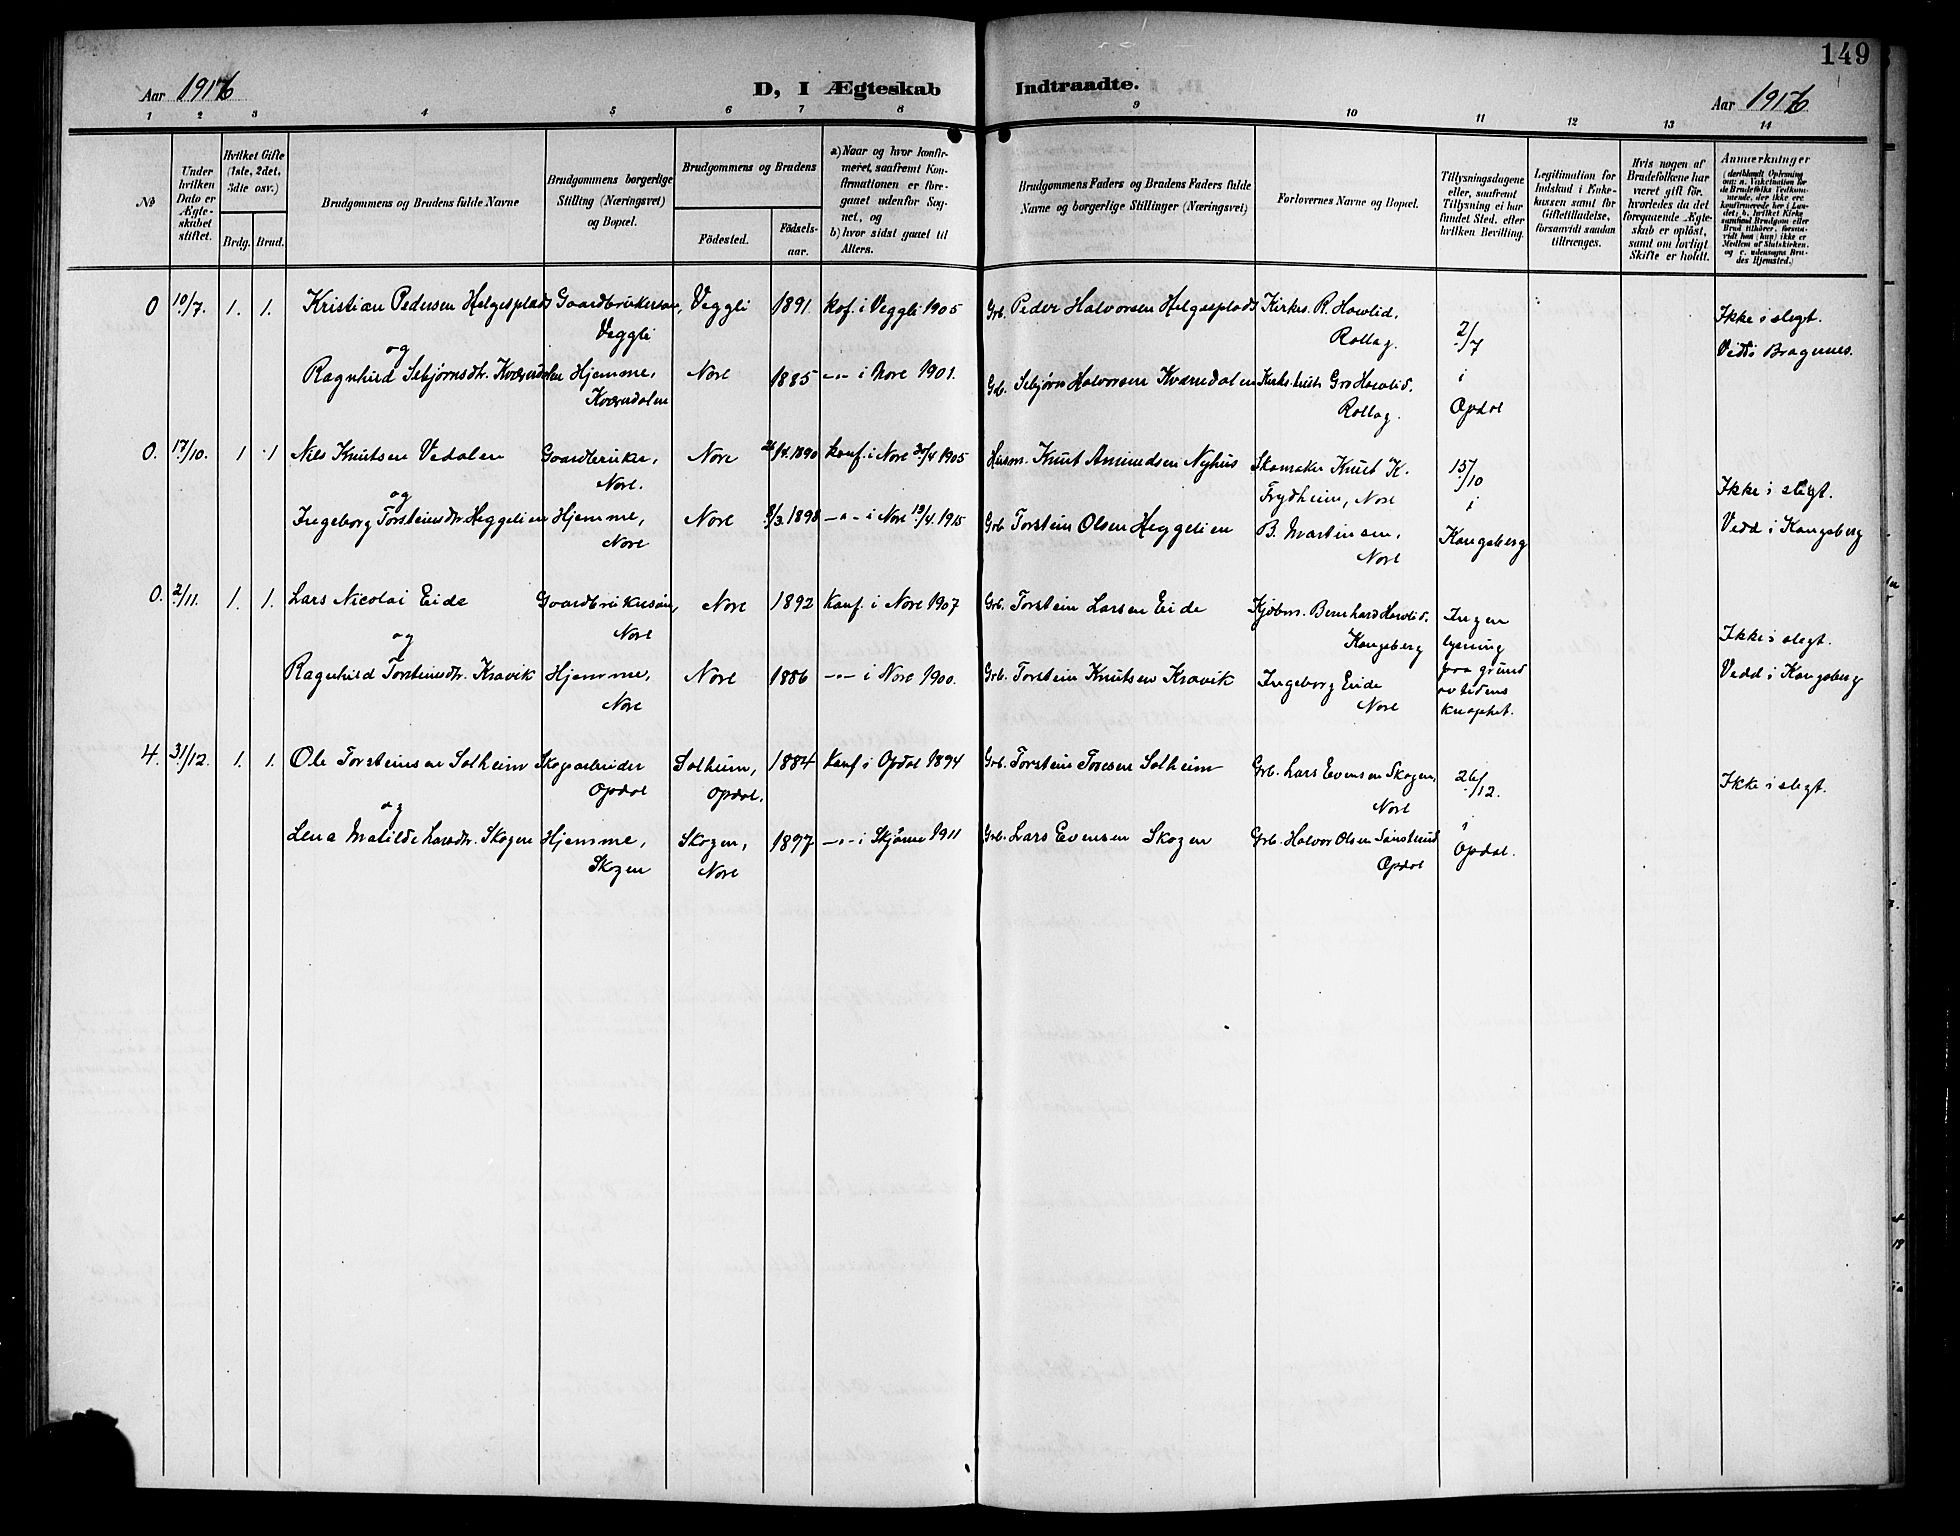 149
Aar 1916
D, I Ægteskab Indtraadte.
Aar 1916
1 2 3 4 5 6 7 8 9 10 11 12 13 14
No
Under hvilken Dato er Ægteskabet stiftet.
Hvilket Gifte (1ste, 2det, 3dte osv.)
Brdg. Brud.
Brudgommens og Brudens fulde Navne
Brudgommens borgerlige Stilling (Næringsvei) og Bopæl.
Brudgommens og Brudens
Födested.
Födsels-aar.
a) Naar og hvor konfirmeret, saafremt Konfirmationen er foregaaet udenfor Sognet, og
b) hvor sidst gaaet til Alters.
Brudgommens Faders og Brudens Faders fulde Navne og borgerlige Stillinger (Næringsvei)
Forlovernes Navne og Bopæl.
Tillysningsdagene eller, saafremt Tillysning ei har fundet Sted, efter hvilken Bevilling.
Legitimation for Indskud i Enkekassen samt for Giftetilladelse, forsaavidt saadan tiltrænges.
Hvis nogen af Brudefolkene har været gift för, hvorledes da det foregaaende Ægteskab er oplöst, samt om lovligt Skifte er holdt.
Anmærkninger
(deriblandt Oplysning om: a. Vakcination for de Brudefolks Vedkommende, der ikke ere konfirmerede her i Landet; b. hvilket Kirkesamfund Brudgom eller Brud tilhörer, forsaavidt han (hun) ikke er Medlem af Statskirken, og c. udensogns Brudes Hjemsted.)
0 10/7. 1. 1. Kristian Pedersen Helgesplads Gaardbrukersøn, Veggli 1891. kof. i Veggli 1905 Grb. Peder Halvorsen Helgesplads Kirkes. R. Havlid,
Veggli Rollag. 2/7 Ikke i slegt.
og Viet i Bragernes.
Ragnhild Sebjørnsdtr. Kværndalen Hjemme, Nore 1885 -"- i Nore 1901. Gb. Sebjørn Halvorsen Kværndalen Gro Havlid. i
Kværndalen Rollag. Opdal
0. 17/10. 1 1 Nils Knutsen Vedalen Gaardbruker, Nore 1890 Konf. i Nore 1905 Husm. Knut Amundsen Nyhus Skomaker Knut K. 15/10
Nore. Frydheim, Nore Ikke i slegt.
og i
Ingeborg Torsteinsdtr. Heggelien Hjemme, Nore 8/3.1898 -"- i Nore 19/4.1915 Grb. Torstein Olsen Heggelien B. Martinsen, Kongsberg Viedd i Kongsberg
Nore Nore
0. 2/11. 1. 1. Lars Nicolai Eide Gaardbrukersøn, Nore 1892 Konf. i Nore 1907 Grb. Torstein Larsen Eide Kjøbm. Bernhard Havlid. Ingen
Nore Kongsberg lysning Ikke i slegt.
og
Ragnhild Torsteinsdtr. Kravik Hjemme, Nore 1886 -"- i Nore 1900. Grb. Torstein Knutsen Kravik Ingeborg Eide paa grund Viedd i Kongsberg
Nore Nore av tidens
knaphet.
4. 31/12. 1. 1. Ole Torsteinsen Solheim Skogsarbeider Solheim, 1884 Konf i Opdal 1894 Grb. Torstein Toresen Solheim Grb. Lars Evensen Skogen, 26/12.
Opdal Opdal. Nore Ikke i slegt.
og
Lena Matilde Larsdtr. Skogen Hjemme, Skogen, 1897 -"- i Skjønne 1911 Grb. Lars Evensen Skogen Grb. Halvor Olsen i
Skogen Nore Opdal Opdal.